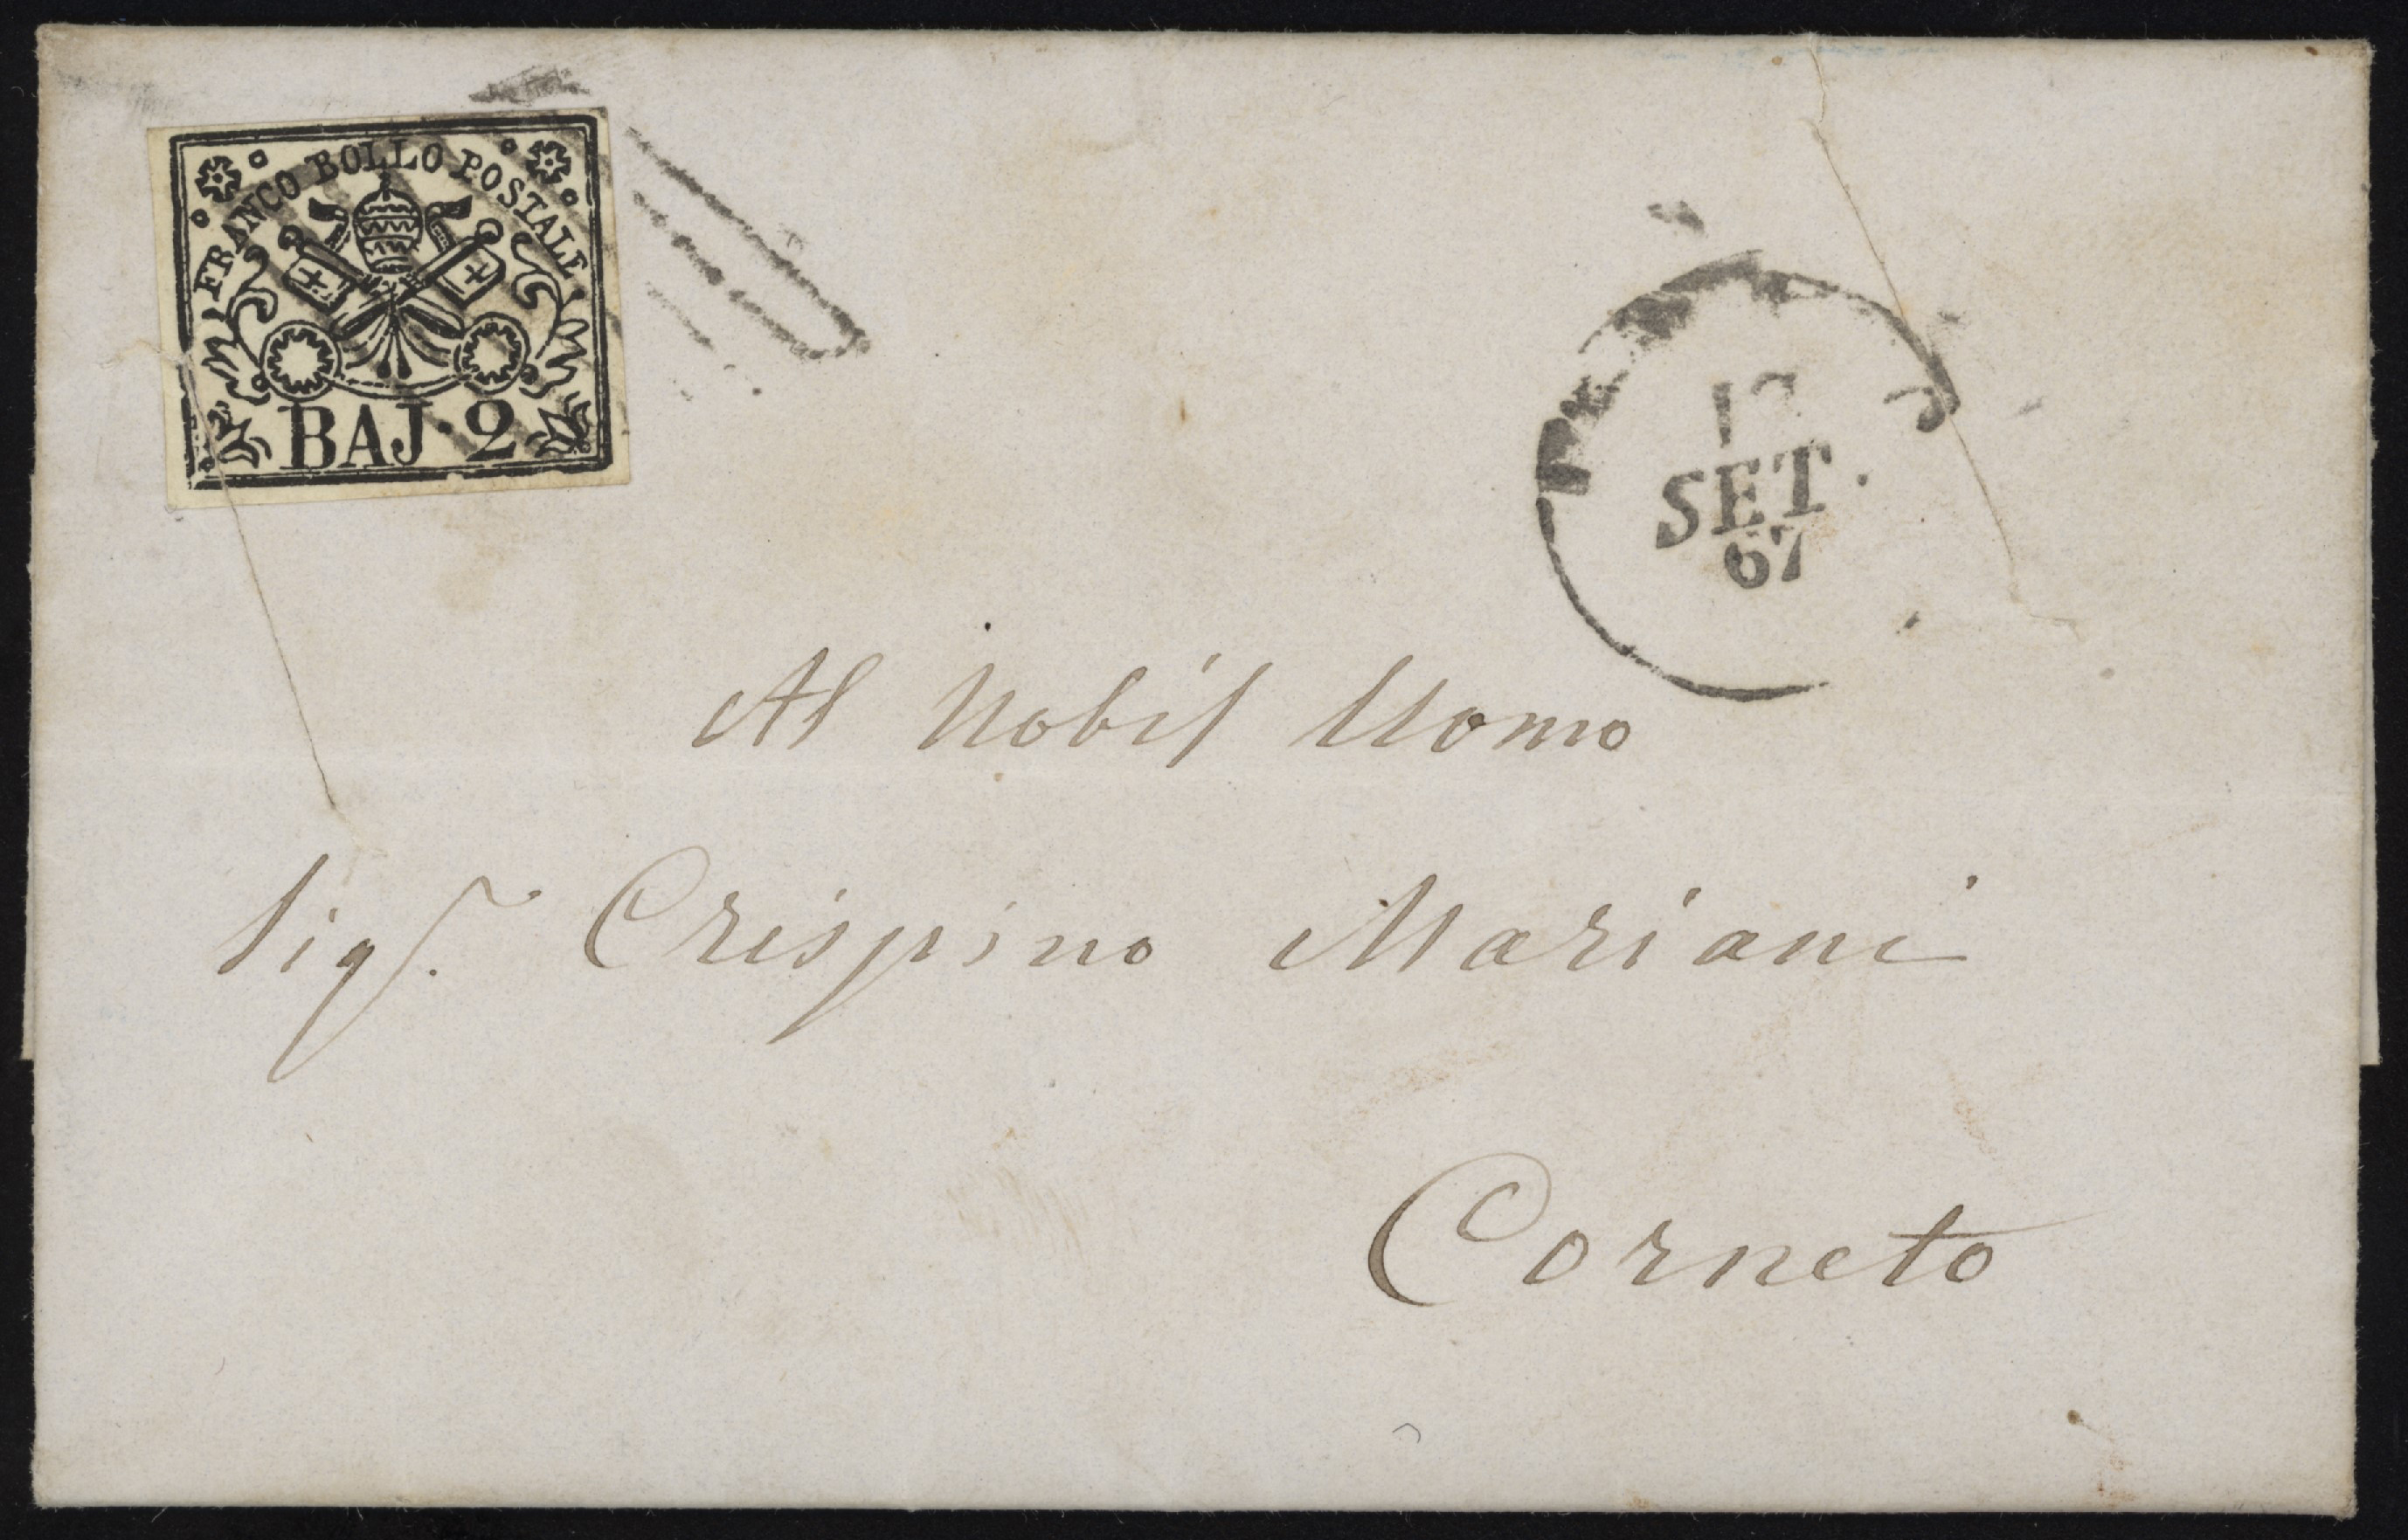 FRANCO BOLLO POSTALE
BAJ. 2
SET.
67
Al Nobil Uomo
Sigr. Crispino Mariani
Corneto